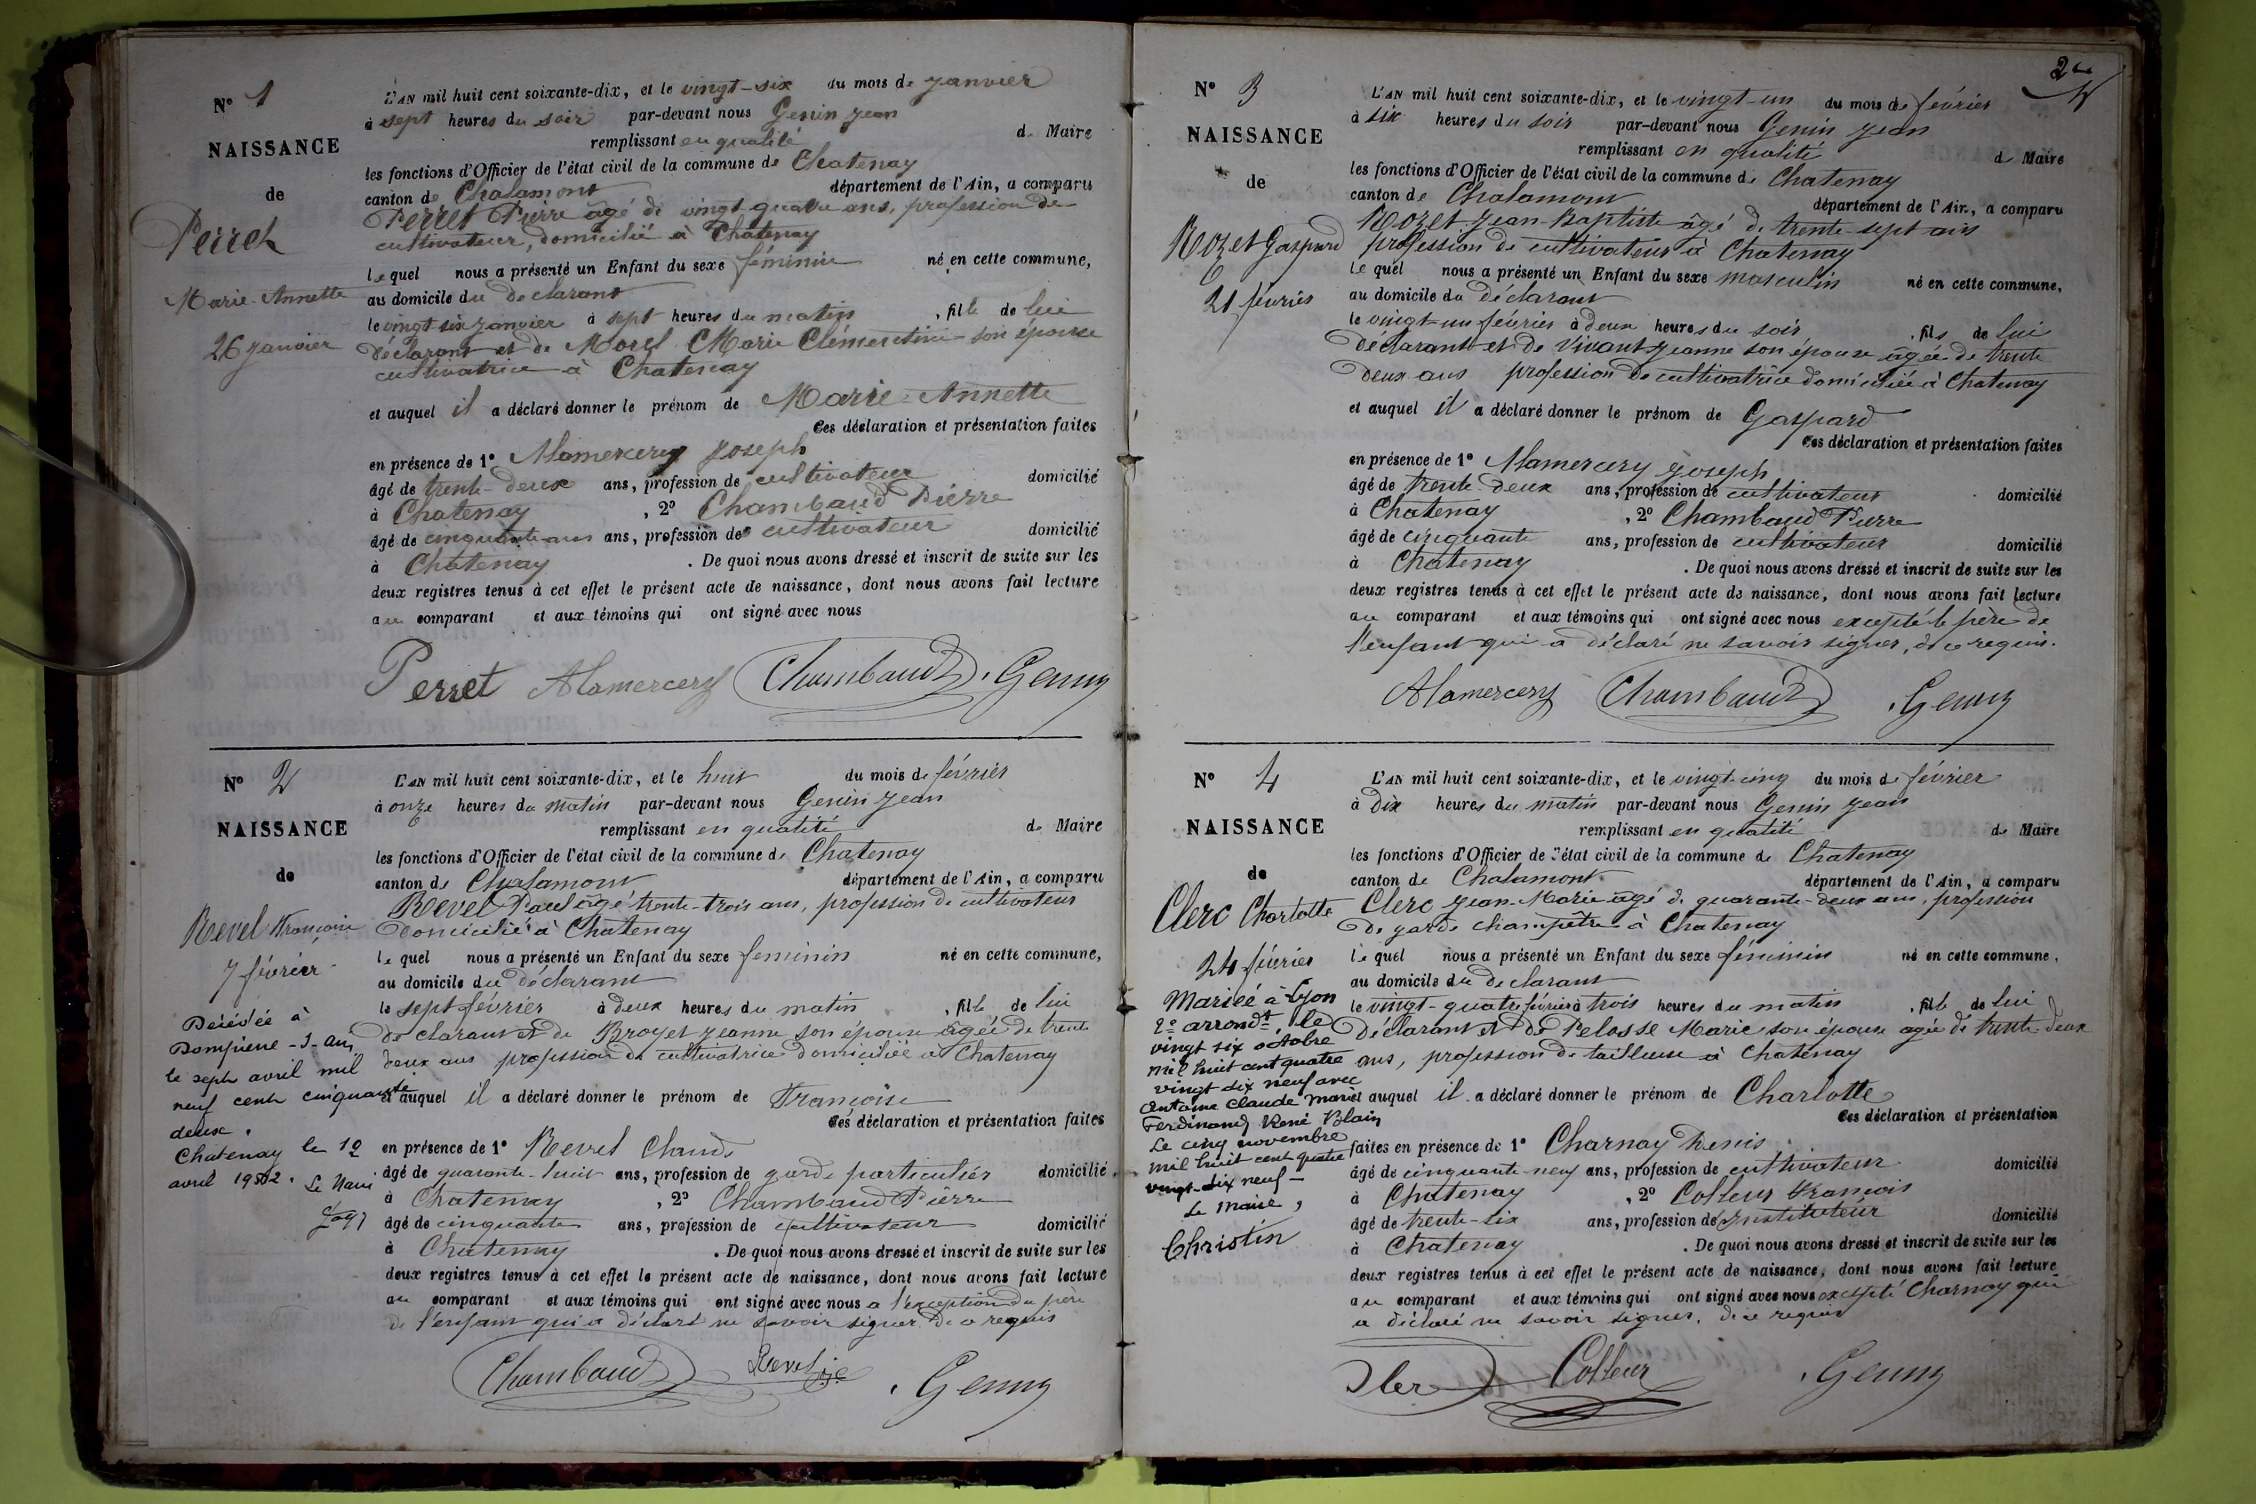 N° 1
NAISSANCE
de
Perret
Marie-Annette
26 janvier
L'AN mil huit cent soixante-dix, et le vingt-six du mois de janvier
à sept heures du soir par-devant nous Genin Jean
remplissant en qualité de Maire
les fonctions d'Officier de l'état civil de la commune de Chatenay
canton de Chalamont département de l'Ain, a comparu
Perret Pierre âgé de vingt-quatre ans, profession de
cultivateur, domicilié à Chatenay
lequel nous a présenté un Enfant du sexe féminin né en cette commune,
au domicile du déclarant
le vingt six janvier à sept heures du matin, fille de lui
déclarant et de Morel Marie Clémentine son épouse
cultivatrice à Chatenay
et auquel il a déclaré donner le prénom de Marie-Annette
Ces déclaration et présentation faites
en présence de 1° Alamercery Joseph
âgé de trente-deux ans, profession de cultivateur domicilié
à Chatenay, 2° Chambaud Pierre
âgé de cinquante ans ans, profession de cultivateur domicilié
à Chatenay. De quoi nous avons dressé et inscrit de suite sur les
deux registres tenus à cet effet le présent acte de naissance, dont nous avons fait lecture
au comparant et aux témoins qui ont signé avec nous
Perret Alamercery Chambaud Genin
N° 2
NAISSANCE
de
Revel Françoise
7 février
Décédée à
Dompierre-s-Ain
le sept avril mil
neuf cent cinquante
deux.
Chatenay le 12
avril 1952. Le Maire
L'AN mil huit cent soixante-dix, et le huit du mois de février
à onze heures du matin par-devant nous Genin Jean
remplissant en qualité de Maire
les fonctions d'Officier de l'état civil de la commune de Chatenay
canton de Chalamont département de l'Ain, a comparu
Revel Paul âgé trente-trois ans, profession de cultivateur
domicilié à Chatenay
lequel nous a présenté un Enfant du sexe féminin né en cette commune,
au domicile du déclarant
le sept février à deux heures du matin, fille de lui
déclarant et de Broyer Jeanne son épouse âgée de trente
deux ans profession de cultivatrice domiciliée à Chatenay
et auquel il a déclaré donner le prénom de Françoise
Ces déclaration et présentation faites
en présence de 1° Revel Claude
âgé de quarante-huit ans, profession de garde particulier domicilié
à Chatenay, 2° Chambaud Pierre
âgé de cinquante ans, profession de cultivateur domicilié
à Chatenay. De quoi nous avons dressé et inscrit de suite sur les
deux registres tenus à cet effet le présent acte de naissance, dont nous avons fait lecture
au comparant et aux témoins qui ont signé avec nous a l'exception du père
de l'enfant qui a déclaré ne savoir signer de ce requis
Chambaud Revel Genin
2
N° 3
NAISSANCE
de
Rozet Gaspard
21 février
L'AN mil huit cent soixante-dix, et le vingt-un du mois de février
à six heures du soir par-devant nous Genin Jean
remplissant en qualité de Maire
les fonctions d'Officier de l'état civil de la commune de Chatenay
canton de Chalamont département de l'Ain, a comparu
Rozet Jean-Baptiste âgé de trente-sept ans
profession de cultivateur à Chatenay
lequel nous a présenté un Enfant du sexe masculin né en cette commune,
au domicile du déclarant
le vingt-un février à deux heures du soir, fils de lui
déclarant et de Vivant Jeanne son épouse âgée de trente
deux ans profession de cultivatrice domiciliée à Chatenay
et auquel il a déclaré donner le prénom de Gaspard
Ces déclaration et présentation faites
en présence de 1° Alamercery Joseph
âgé de trente-deux ans, profession de cultivateur domicilié
à Chatenay, 2° Chambaud Pierre
âgé de cinquante ans, profession de cultivateur domicilié
à Chatenay. De quoi nous avons dressé et inscrit de suite sur les
deux registres tenus à cet effet le présent acte de naissance, dont nous avons fait lecture
au comparant et aux témoins qui ont signé avec nous excepté le père de
l'enfant qui a déclaré ne savoir signer, de ce requis.
Alamercery Chambaud Genin
N° 4
NAISSANCE
de
Clerc Charlotte
24 février
Mariée à Lyon
2e arrondt, le
vingt six octobre
mil huit cent quatre
vingt dix neuf avec
Antoine Claude Marie
Ferdinand René Blain
Le cinq novembre
mil huit cent quatre
vingt-dix neuf-
Le Maire,
Christin
L'AN mil huit cent soixante-dix, et le vingt-cinq du mois de février
à dix heures du matin par-devant nous Genin Jean
remplissant en qualité de Maire
les fonctions d'Officier de l'état civil de la commune de Chatenay
canton de Chalamont département de l'Ain, a comparu
Clerc Jean-Marie âgé de quarante-deux ans, profession
de garde champêtre à Chatenay
lequel nous a présenté un Enfant du sexe féminin né en cette commune,
au domicile du déclarant
le vingt-quatre février à trois heures du matin, fille de lui
déclarant et de Pelosse Marie son épouse agée de trente-deux
ans, profession de tailleuse à Chatenay
et auquel il a déclaré donner le prénom de Charlotte
Ces déclaration et présentation
faites en présence de 1° Charnay Denis
âgé de cinquante-neuf ans, profession de cultivateur domicilié
à Chatenay, 2° Colleur François
âgé de trente-six ans, profession de Instituteur domicilié
à Chatenay. De quoi nous avons dressé et inscrit de suite sur les
deux registres tenus à cet effet le présent acte de naissance, dont nous avons fait lecture
au comparant et aux témoins qui ont signé avec nous excepté Charnay qui
a déclaré ne savoir signer, de ce requis
Clerc Colleur Genin